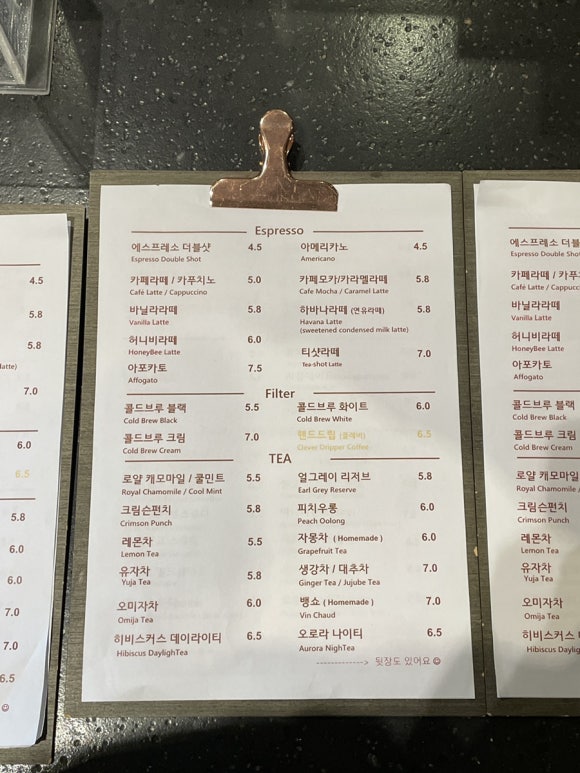 4.5
5.8
5.8
latte)
7.0
6.0
6.5
5.8
6.0
6.0
7.0
7.0
6.5
☺
Espresso
에스프레소 더블샷 4.5
Espresso Double Shot
아메리카노 4.5
Americano
카페라떼 / 카푸치노 5.0
Café Latte / Cappuccino
카페모카/카라멜라떼 5.8
Cafe Mocha / Caramel Latte
바닐라라떼 5.8
Vanilla Latte
하바나라떼 (연유라떼) 5.8
Havana Latte
(sweetened condensed milk latte)
허니비라떼 6.0
HoneyBee Latte
티샷라떼 7.0
Tea-shot Latte
아포카토 7.5
Affogato
Filter
콜드브루 블랙 5.5
Cold Brew Black
콜드브루 화이트 6.0
Cold Brew White
콜드브루 크림 7.0
Cold Brew Cream
핸드드립 (클레버) 6.5
Clever Dripper Coffee
TEA
로얄 캐모마일 / 쿨민트 5.5
Royal Chamomile / Cool Mint
얼그레이 리저브 5.8
Earl Grey Reserve
크림슨펀치 5.8
Crimson Punch
피치우롱 6.0
Peach Oolong
레몬차 5.5
Lemon Tea
자몽차 ( Homemade ) 6.0
Grapefruit Tea
유자차 5.8
Yuja Tea
생강차 / 대추차 7.0
Ginger Tea / Jujube Tea
오미자차 6.0
Omija Tea
뱅쇼 ( Homemade ) 7.0
Vin Chaud
히비스커스 데이라이티 6.5
Hibiscus DaylighTea
오로라 나이티 6.5
Aurora NighTea
-------------> 뒷장도 있어요 ☺
에스프레소 더
Espresso Double Sh
카페라떼 / 카푸
Café Latte / Cappucc
바닐라라떼
Vanilla Latte
허니비라떼
HoneyBee Latte
아포카토
Affogato
콜드브루 블랙
Cold Brew Black
콜드브루 크림
Cold Brew Cream
로얄 캐모마일
Royal Chamomile /
크림슨펀치
Crimson Punch
레몬차
Lemon Tea
유자차
Yuja Tea
오미자차
Omija Tea
히비스커스
Hibiscus Dayligh